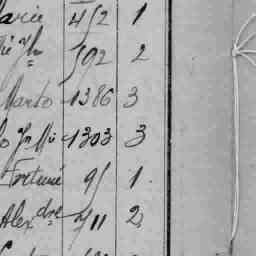 arie 452 1
592 2
Marto 1386 3
Jn Mie 1303 3
Fortuné 95 1
Alexdre 711 2